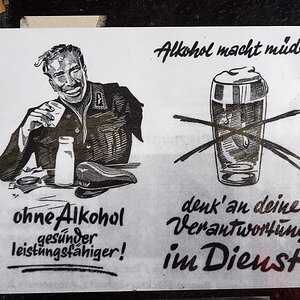 Alkohol macht müd
ohne Alkohol
gesünder
leistungsfähiger!
denk' an deine
Verantwortun
im Dienst